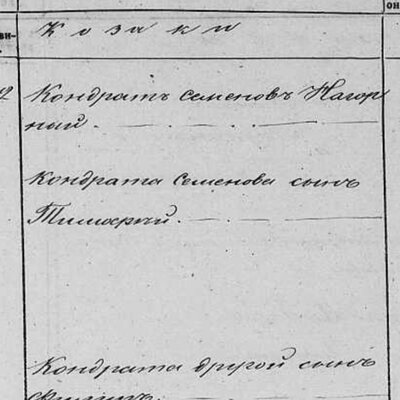 он
Козаки
ви-
2
Кондратъ Семеновъ Нагор
ный.
Кондрата Семенова сынъ
Тимофей.
Кондрата другой сынъ